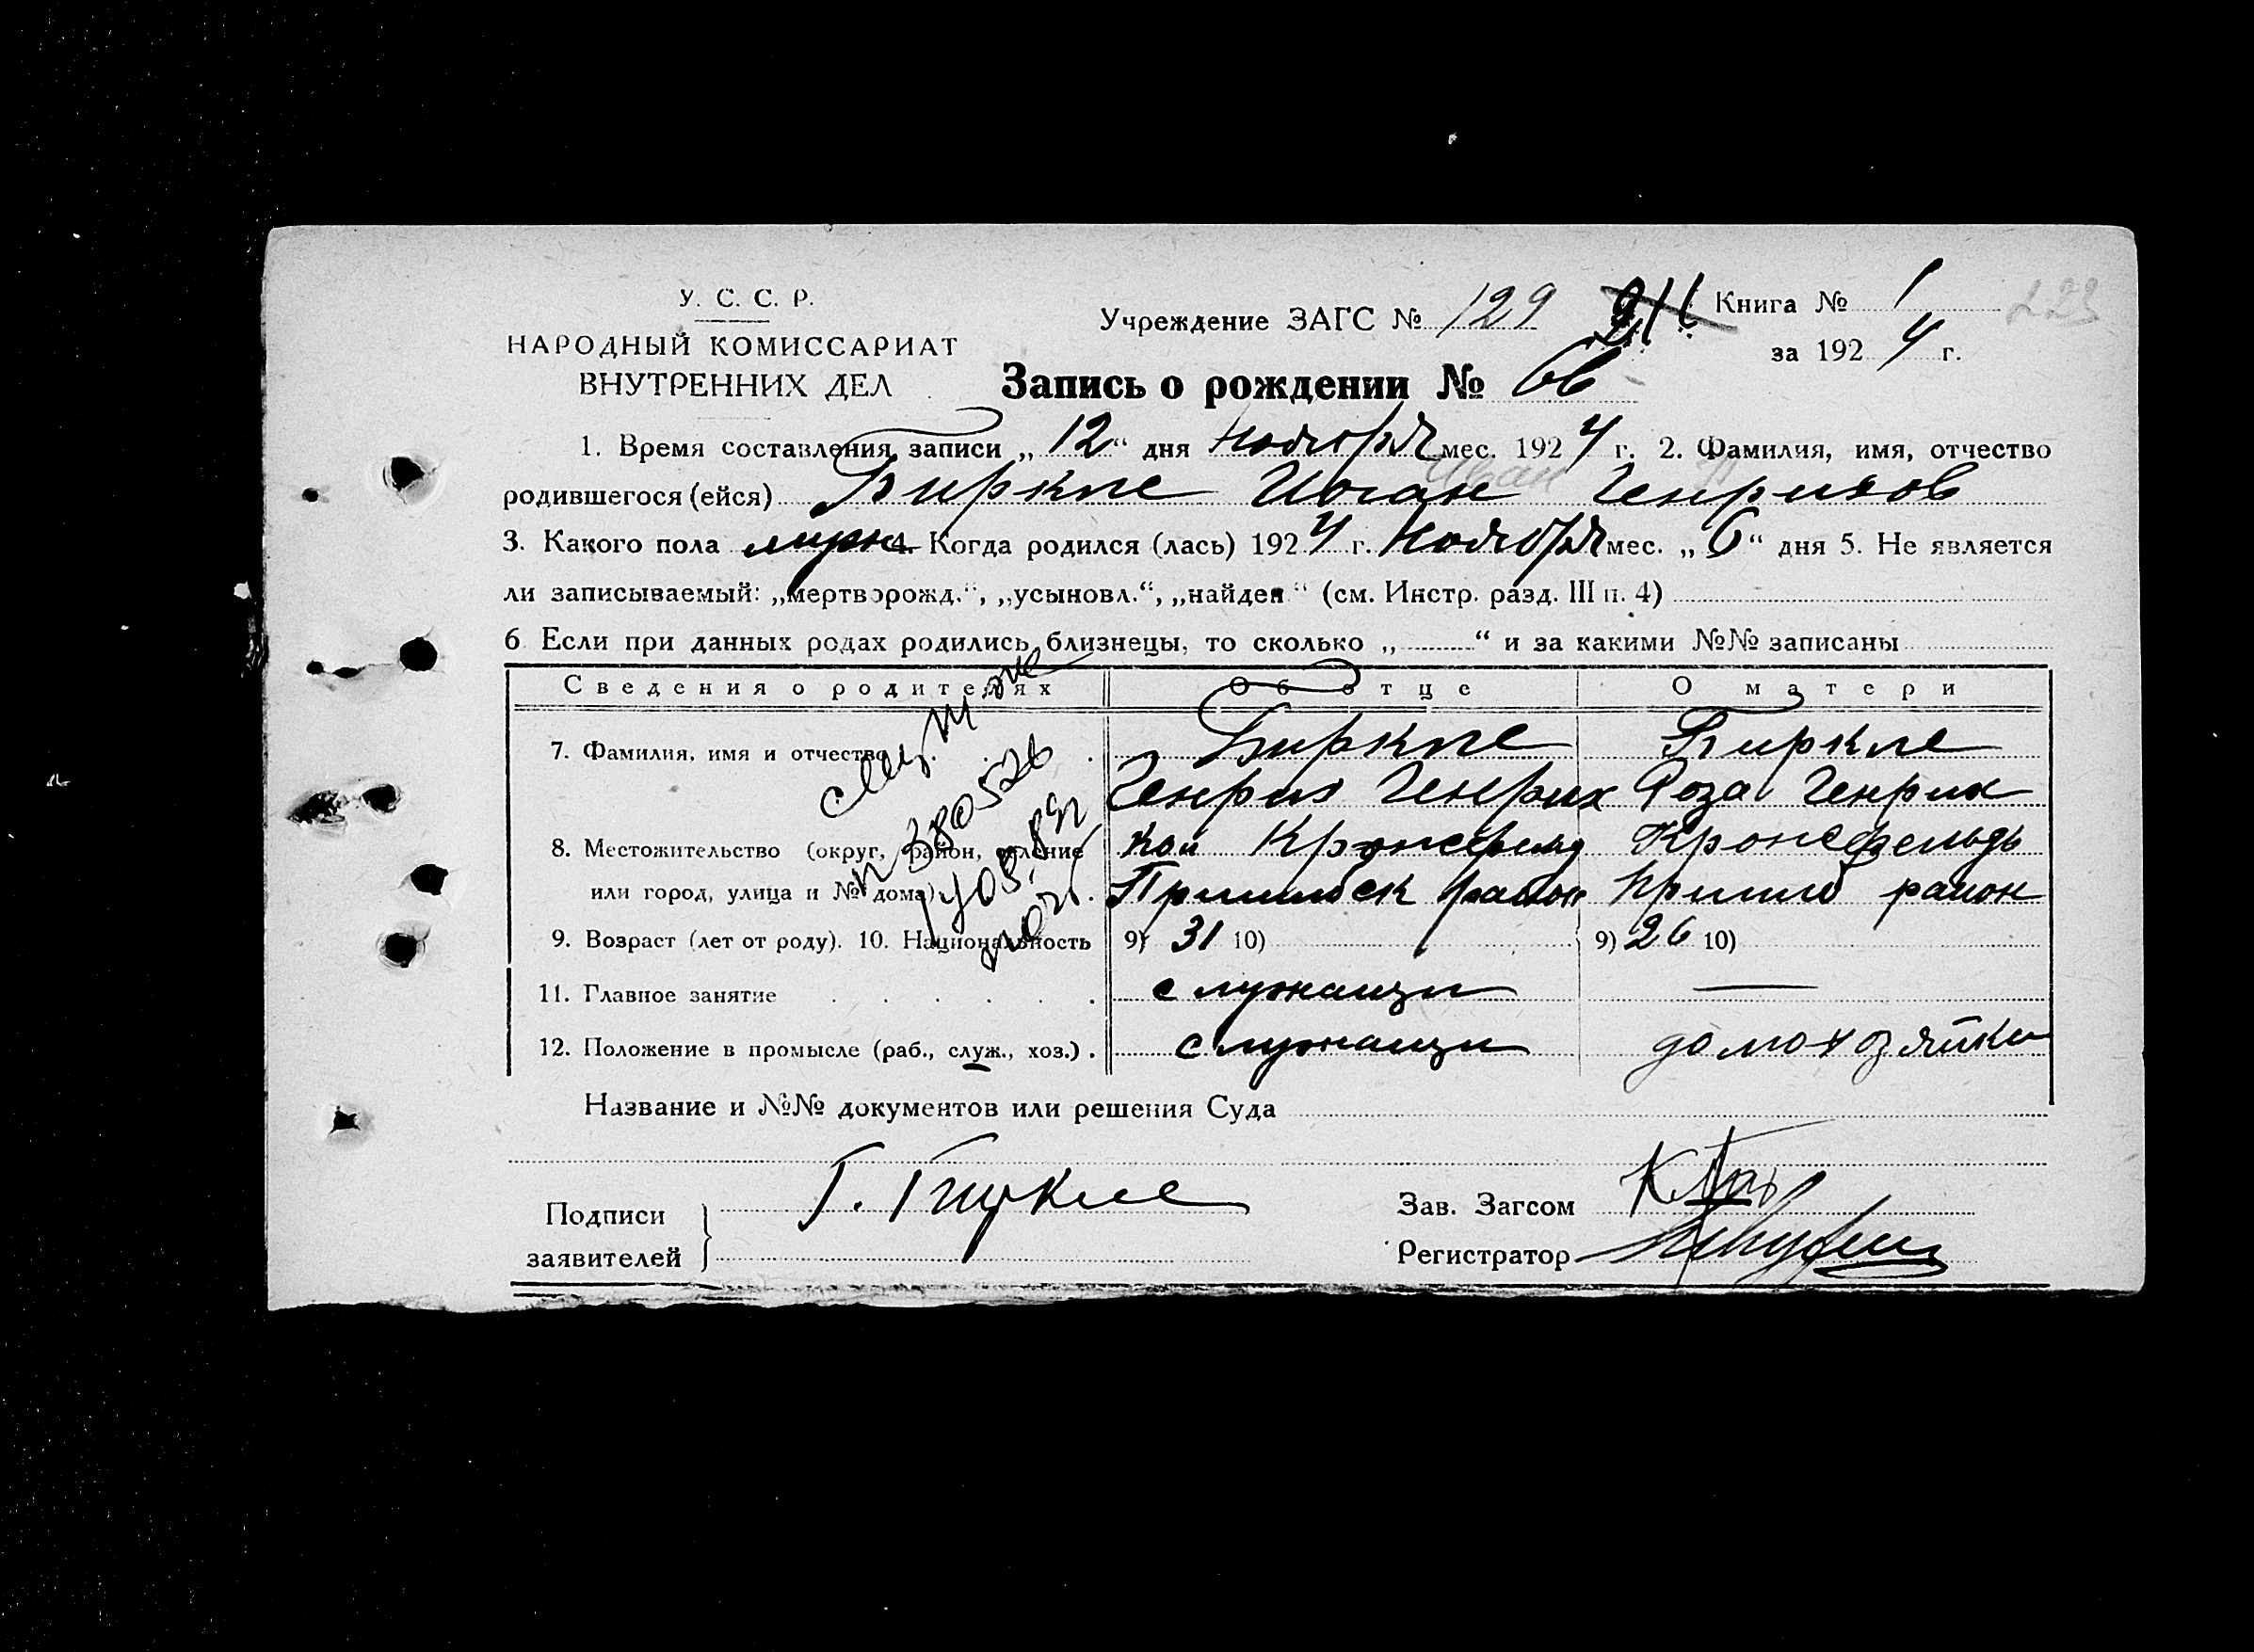 У. С. С. Р.
НАРОДНЫЙ КОМИССАРИАТ
ВНУТРЕННИХ ДЕЛ
Учреждение ЗАГС № 129
Книга № 1
223
за 1924 г.
Запись о рождении № 66
1. Время составления записи „12“ дня ноября мес. 1924 г. 2. Фамилия, имя, отчество
Иван
родившегося (ейся) Биркле Иоган Генрихов
3. Какого пола мужс 4. Когда родился (лась) 1924 г. Ноября мес. „6“ дня 5. Не является
ли записываемый: „мертворожд.“, „усыновл.“, „найден“ (см. Инстр. разд. III п. 4)
6 Если при данных родах родились близнецы, то сколько „ “ и за какими №№ записаны
Сведения о родителях Об отце О матери
7. Фамилия, имя и отчество Биркле Биркле
Генрих Генрих Роза Генрих
8. Местожительство (округ, район, селение Кол Кронсфельд Кронсфельдь
или город, улица и № дома) Пришибск район Пришиб район
9. Возраст (лет от роду). 10. Национальность 9) 31 10) 9) 26 10)
11. Главное занятие служащи —
12. Положение в промысле (раб., служ., хоз.) служащи домохозяйки
n 380526
Название и №№ документов или решения Суда
Подписи заявителей Г. Биркле
Зав. Загсом
Регистратор